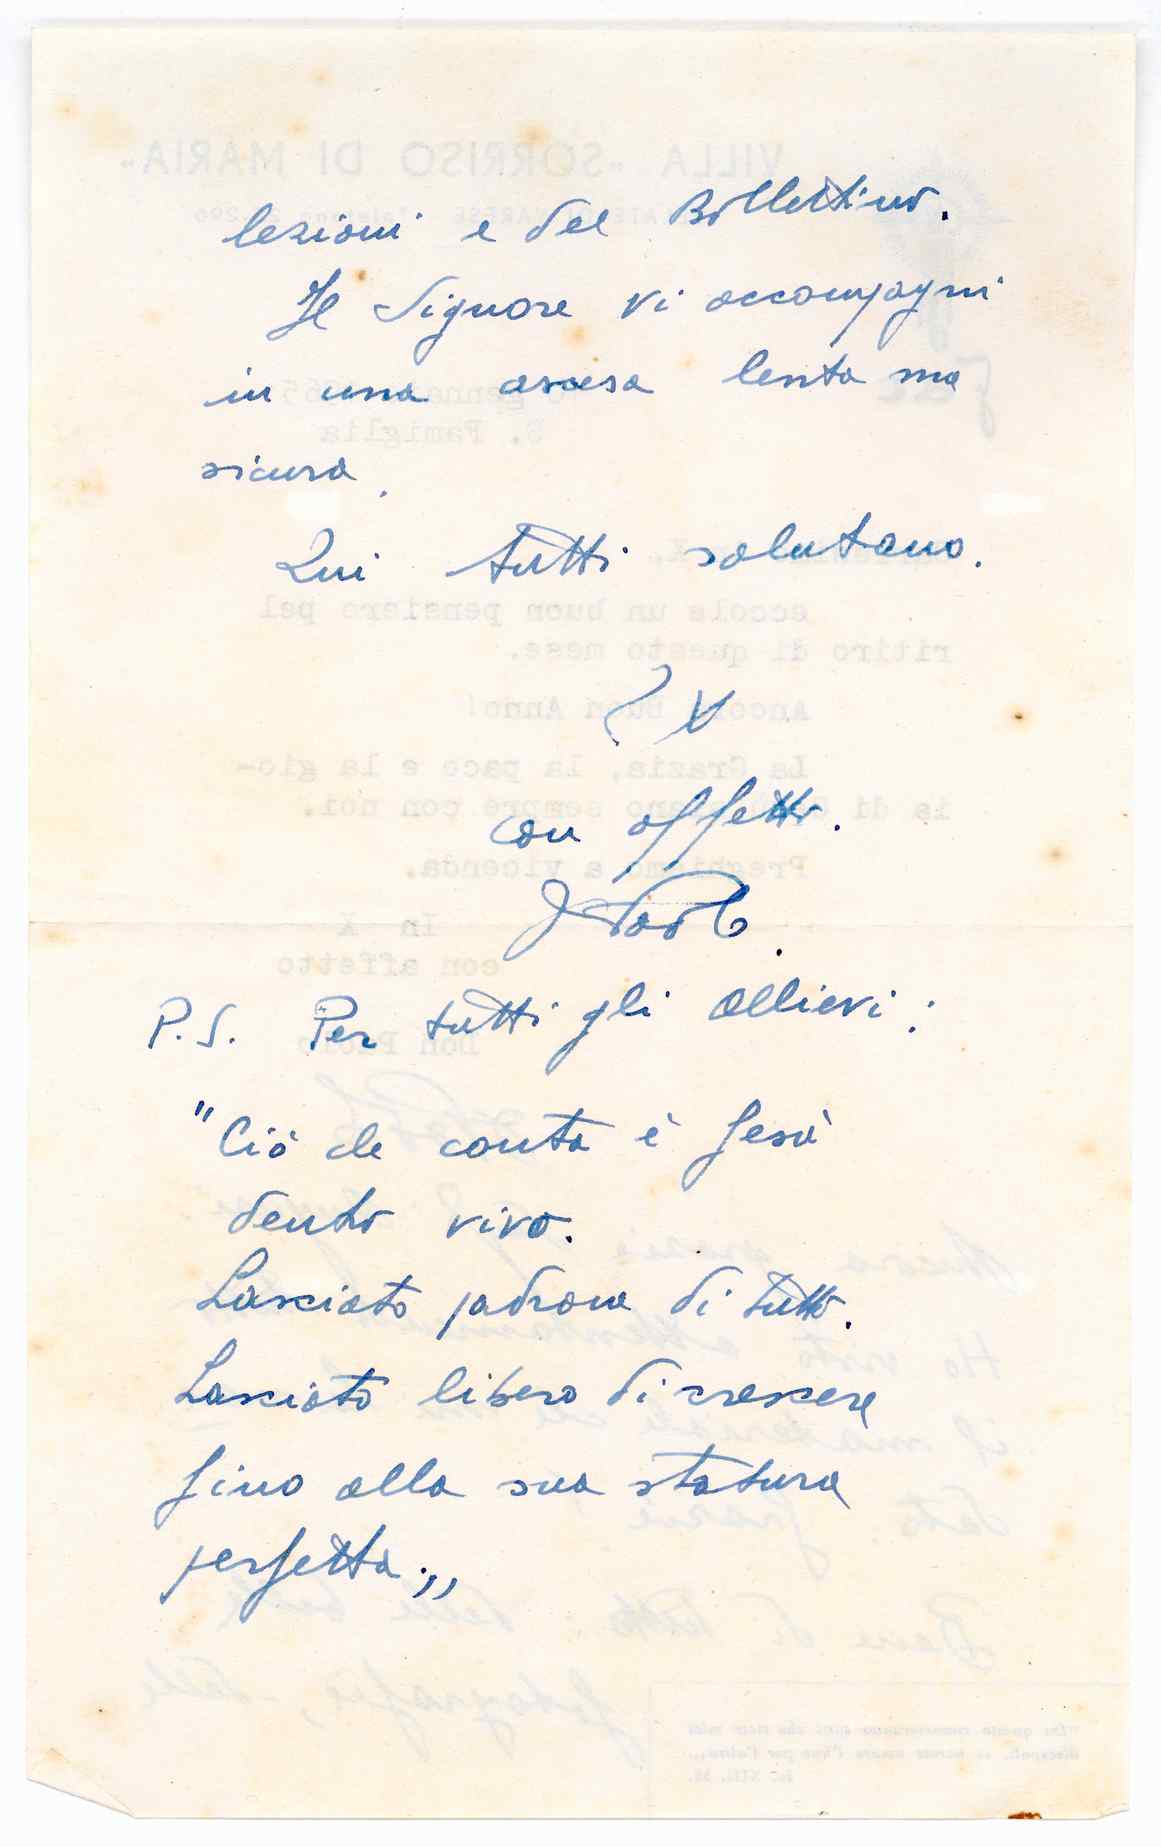 lezioni e del Bollettino.
Il Signore vi accompagni
in una ascesa lenta ma
sicura.
Qui tutti salutano.
con affetto.
P.S. Per tutti gli allievi:
"Ciò che conta è Gesù
dentro vivo.
Lasciato padrone di tutto.
Lasciato libero di crescere
fino alla sua statura
perfetta.,,